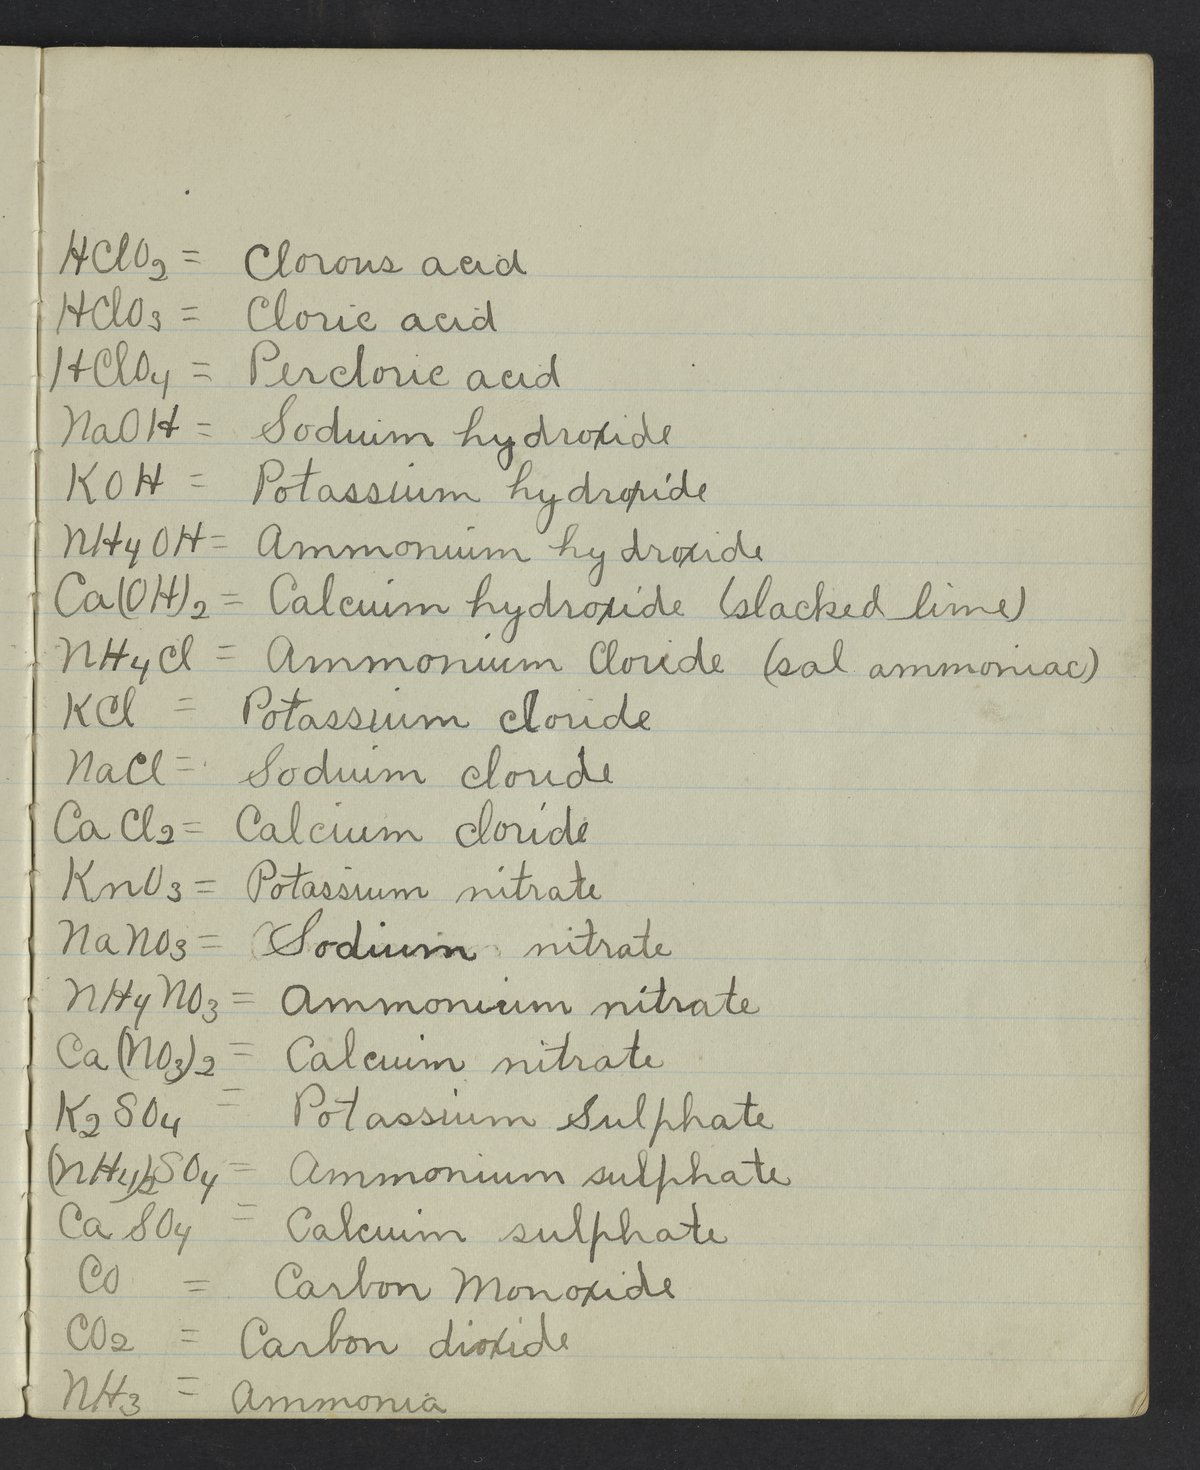 HClO2 = Clorous acid
HClO3 = Cloric acid
HClO4 = Percloric acid
NaOH = Sodium hydroxide
KOH = Potassium hydroxide
NH4OH = Ammonium hydroxide
Ca(OH)2 = Calcium hydroxide (slacked lime)
NH4Cl = Ammonium Cloride (sal ammoniac)
KCl = Potassium cloride
NaCl = Sodium cloride
CaCl2 = Calcium cloride
KnO3 = Potassium nitrate
NaNO3 = Sodium nitrate
NH4NO3 = Ammonium nitrate
Ca(NO3)2 = Calcium nitrate
K2SO4 = Potassium Sulphate
(NH4)2SO4 = Ammonium sulphate
CaSO4 = Calcium sulphate
CO = Carbon Monoxide
CO2 = Carbon dioxide
NH3 = Ammonia